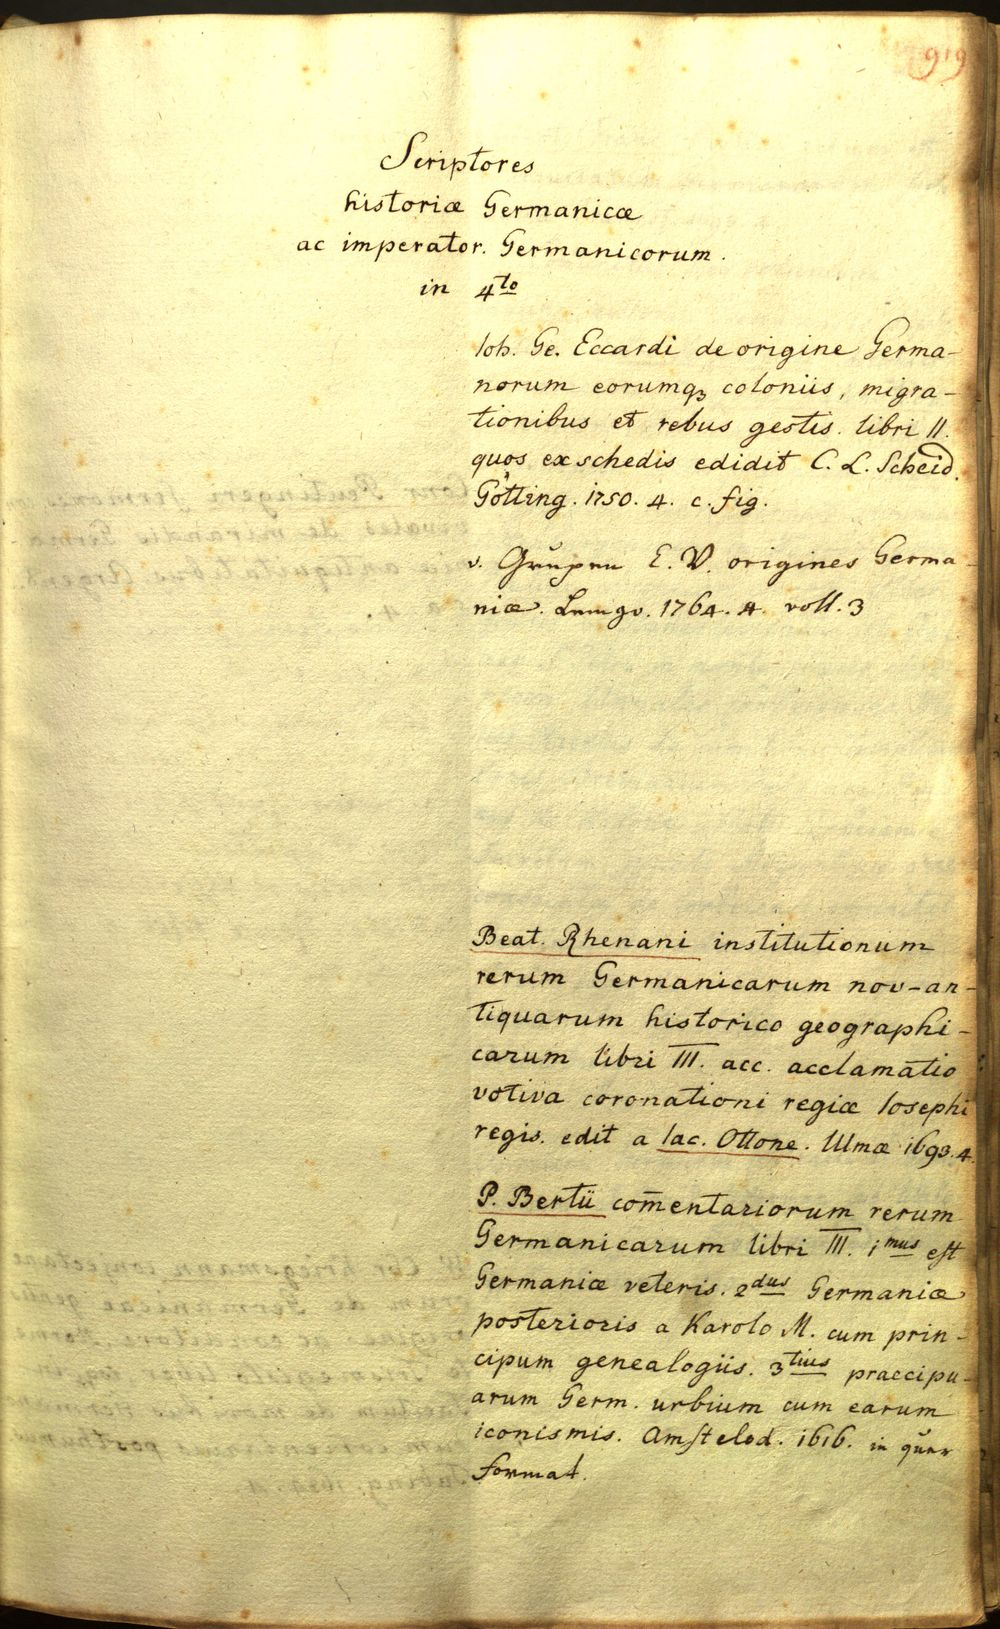 919
Scriptores
historiæ Germanicæ
ac imperator. Germanicorum.
in 4to
Ioh. Ge. Eccardi de origine Germa-
norum eorumqȝ coloniis, migra-
tionibus et rebus gestis libri II.
quos ex schedis edidit C. L. Scheid.
Götting. 1750. 4. c. fig.
v. Grupen E. V. origines Germa-
niæ. Lemgo. 1764. 4. voll. 3
Beat. Rhenani institutionum
rerum Germanicarum nov-an-
tiquarum historico geographi-
carum libri III. acc. acclamatio
votiva coronationi regiæ Iosephi
regis. edit a Iac. Ottone. Ulmæ 1693. 4.
P. Bertii com̄entariorum rerum
Germanicarum libri III. 1mus est
Germaniæ veteris. 2dus Germaniæ
posterioris a Karolo M. cum prin-
cipum genealogiis. 3tius praecipu-
arum Germ. urbium cum earum
iconismis. Amstelod. 1616. in quer
format.